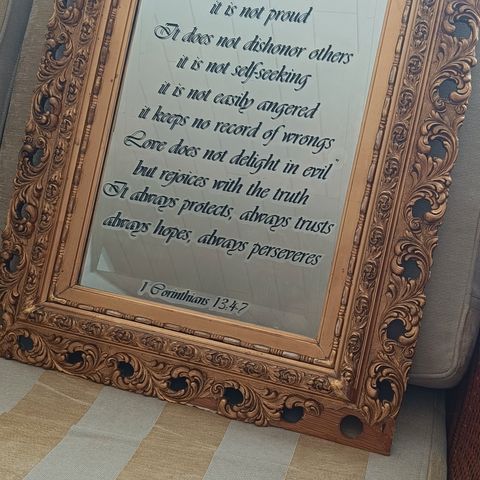 it is not proud
It does not dishonor others
it is not self-seeking
it is not easily angered
it keeps no record of wrongs
Love does not delight in evil"
but rejoices with the truth
It always protects, always trusts
always hopes, always perseveres
1 Corinthians 13.4.7